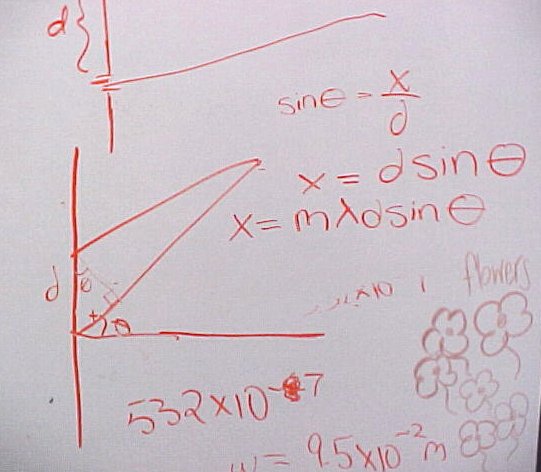 d{
sinθ = x/d
x = dsinθ
x = mλdsinθ
d θ
x10
flowers
x θ
532x10⁻⁷
w = 9.5x10⁻²m